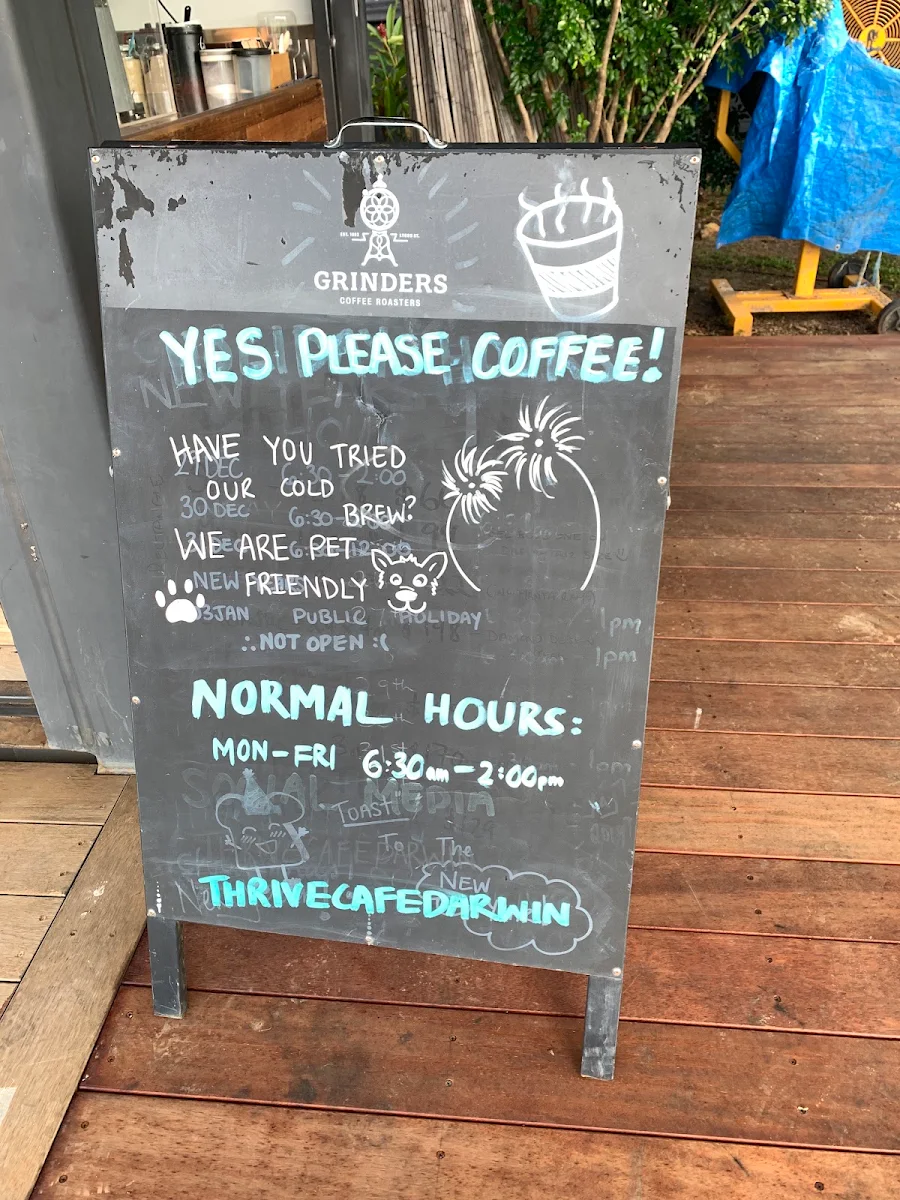 EST. 1962
LYGON ST.
GRINDERS
COFFEE ROASTERS
YES PLEASE COFFEE!
HAVE YOU TRIED
OUR COLD
BREW?
30 DEC 6:30
WE ARE PET
FRIENDLY
3 JAN PUBLIC HOLIDAY
∴ NOT OPEN :(
1pm
1pm
NORMAL HOURS:
MON-FRI 6:30am-2:00pm
SOCIAL MEDIA
TOAST
To The
NEW
THRIVECAFEDARWIN